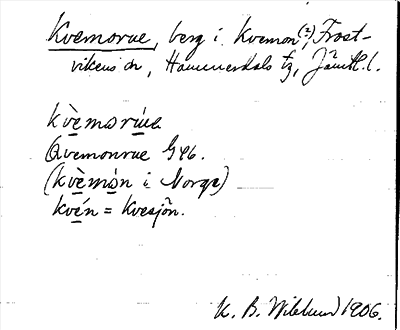 Kvemorue, berg i Kvemon(?), Frost-
vikens sn, Hammerdals tg, Jämtl. l.
kvèmorúe
Qvemonrue G46.
(kvèmón i Norge)
kvén = Kvesjön.
K. B. Wiklund 1906.